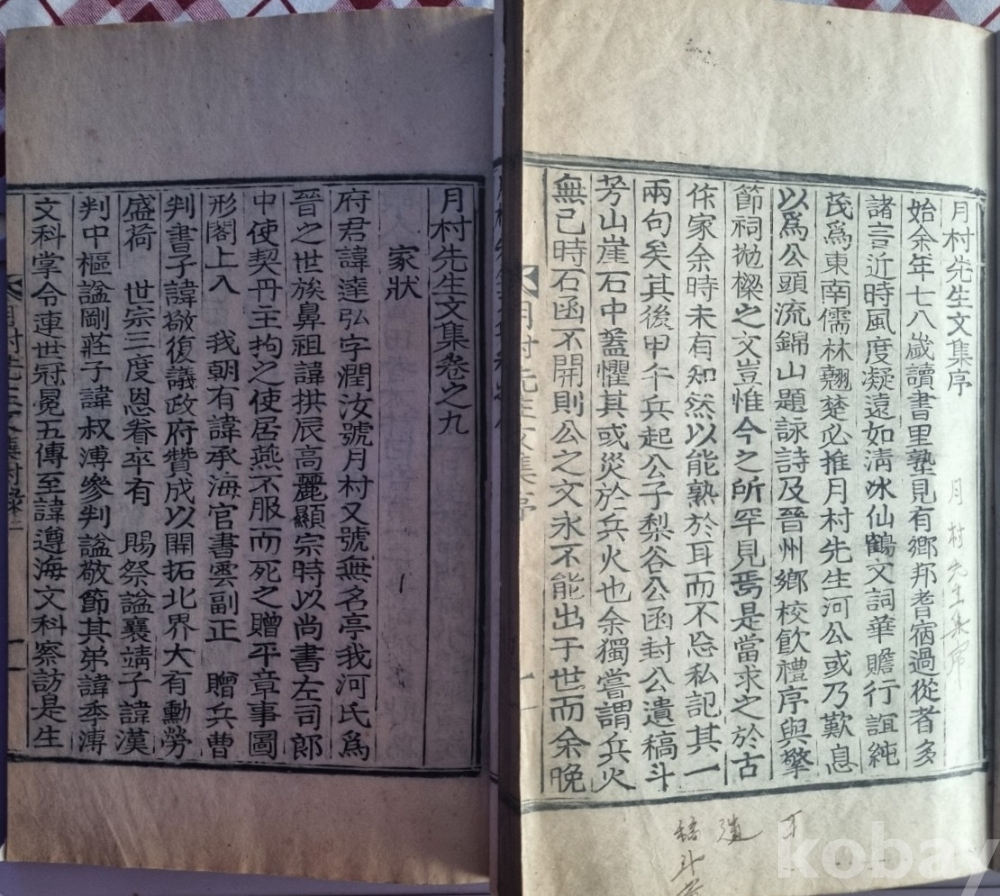 月村先生文集序
始余年七八歲讀書里塾見有鄕邦耆宿過從者多
諸言近時風度凝遠如淸氷仙鶴文詞華贍行誼純
茂爲東南儒林翹楚必推月村先生河公或乃歎息
以爲公頭流錦山題詠詩及晉州鄕校飮禮序與擎
節祠拋樑之文豈惟今之所罕見焉是當求之於古
作家余時未有知然以能熟於耳而不忘私記其一
兩句矣其後甲午兵起公子梨谷公函封公遺稿斗
芳山崖石中蓋懼其或災於兵火也余獨嘗謂兵火
無已時石函不開則公之文永不能出于世而余晩
月村先生集序
遺
月村先生文集卷之九
家狀
府君諱達弘字潤汝號月村又號無名亭我河氏爲
晉之世族鼻祖諱拱辰高麗顯宗時以尙書左司郞
中使契丹王拘之使居燕不服而死之贈平章事圖
形閣上入 我朝有諱承海官書雲副正 贈兵曹
判書子諱敬復議政府贊成以開拓北界大有勳勞
盛荷 世宗三度恩眷卒有 賜祭諡襄靖子諱漢
判中樞諡剛莊子諱叔溥參判諡敬節其弟諱季溥
文科掌令連世冠冕五傳至諱遵海文科察訪是生
kobay